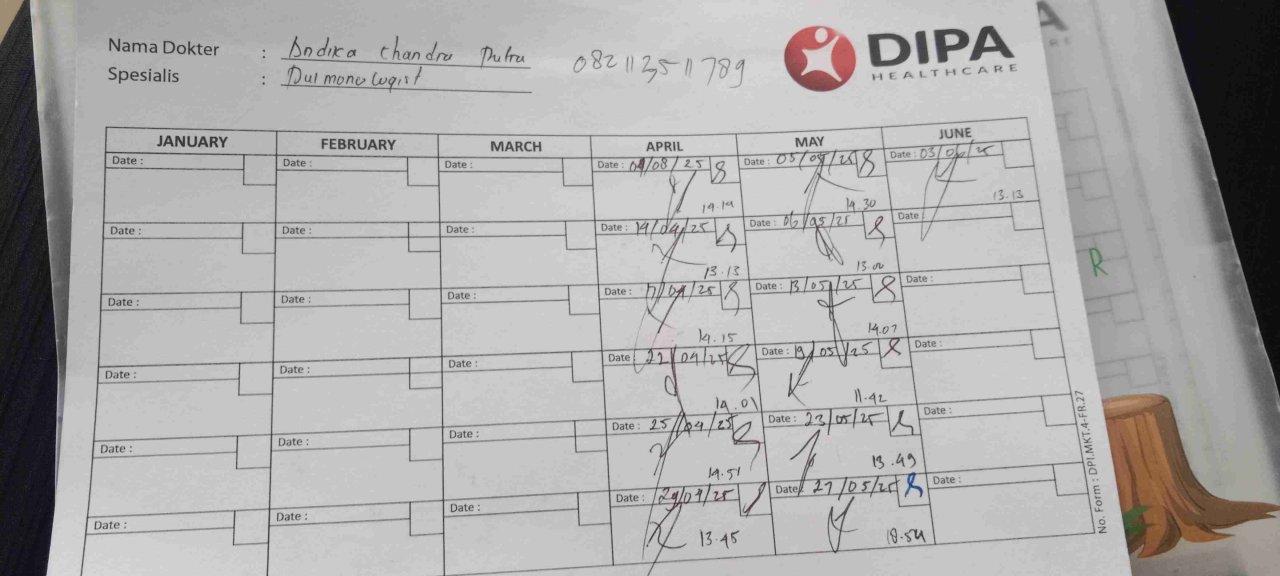 Nama Dokter : Andika Chandra Putra 082113511789
Spesialis : Pulmonologist
DIPA
HEALTHCARE
JANUARY FEBRUARY MARCH APRIL MAY JUNE
Date : Date : Date : Date : 04/08/25 Date : 05/05/25 Date : 03/06/25
14.19 14.30 13.13
Date : Date : Date : Date : 14/04/25 Date : 06/05/25 Date
13.13 13.00
Date : Date : Date : Date : 17/04/25 Date : 13/05/25 Date :
14.15 14.07
Date : Date : Date : Date : 22/04/25 Date : 19/05/25 Date :
14.01 11.42
Date : Date : Date : Date : 25/04/25 Date : 23/05/25 Date :
14.51 13.49
Date : Date : Date : Date : 29/04/25 Date : 27/05/25 Date :
13.45 18.54
No. Form : DPI.MKT.4-FR.27
R